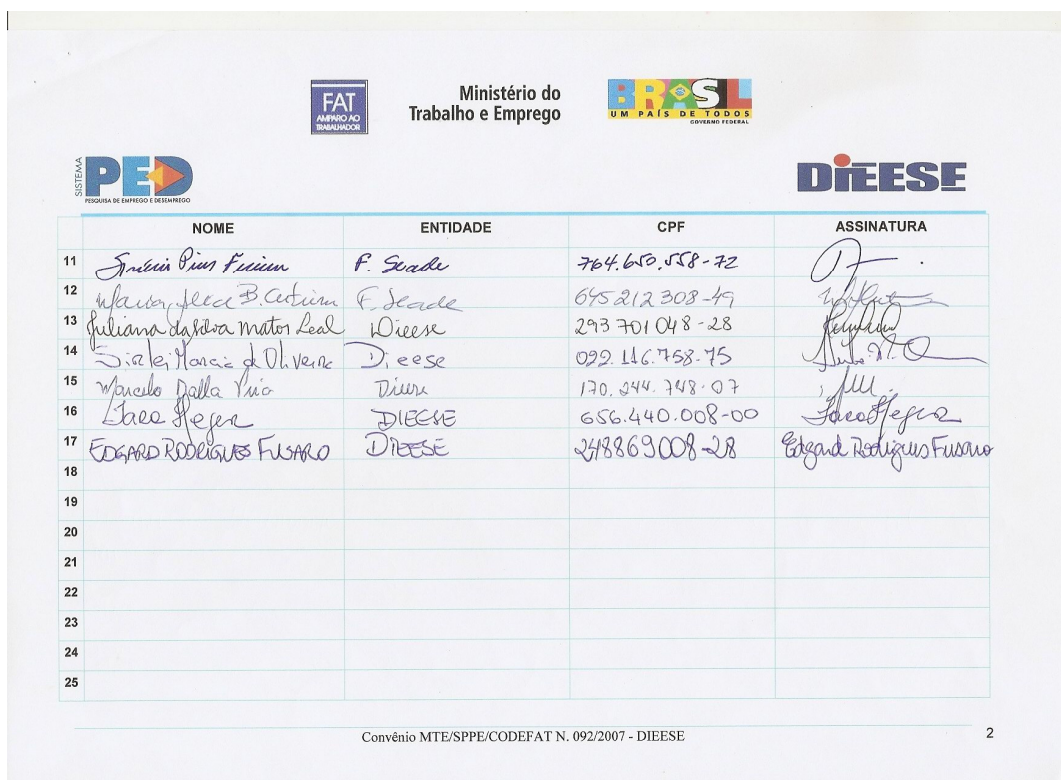 FAT
AMPARO AO
TRABALHADOR
Ministério do
Trabalho e Emprego
BRASIL
UM PAÍS DE TODOS
GOVERNO FEDERAL
SISTEMA
PED
PESQUISA DE EMPREGO E DESEMPREGO
DIEESE
NOME ENTIDADE CPF ASSINATURA
11 F. Seade 764.650.558-72
12 Maria B. F. Seade 645 212 308-49
13 Juliana da Silva Matos Leal Dieese 293 701 048-28
14 Sirlei Marcia de Oliveira Dieese 092.116.758-75
15 Marcelo Dalla Dieese 170.244.748-07
16 DIEESE 656.440.008-00
17 EDGARD RODRIGUES FUSARO DIEESE 248869008-28 Edgard Rodrigues Fusaro
18
19
20
21
22
23
24
25
Convênio MTE/SPPE/CODEFAT N. 092/2007 - DIEESE
2